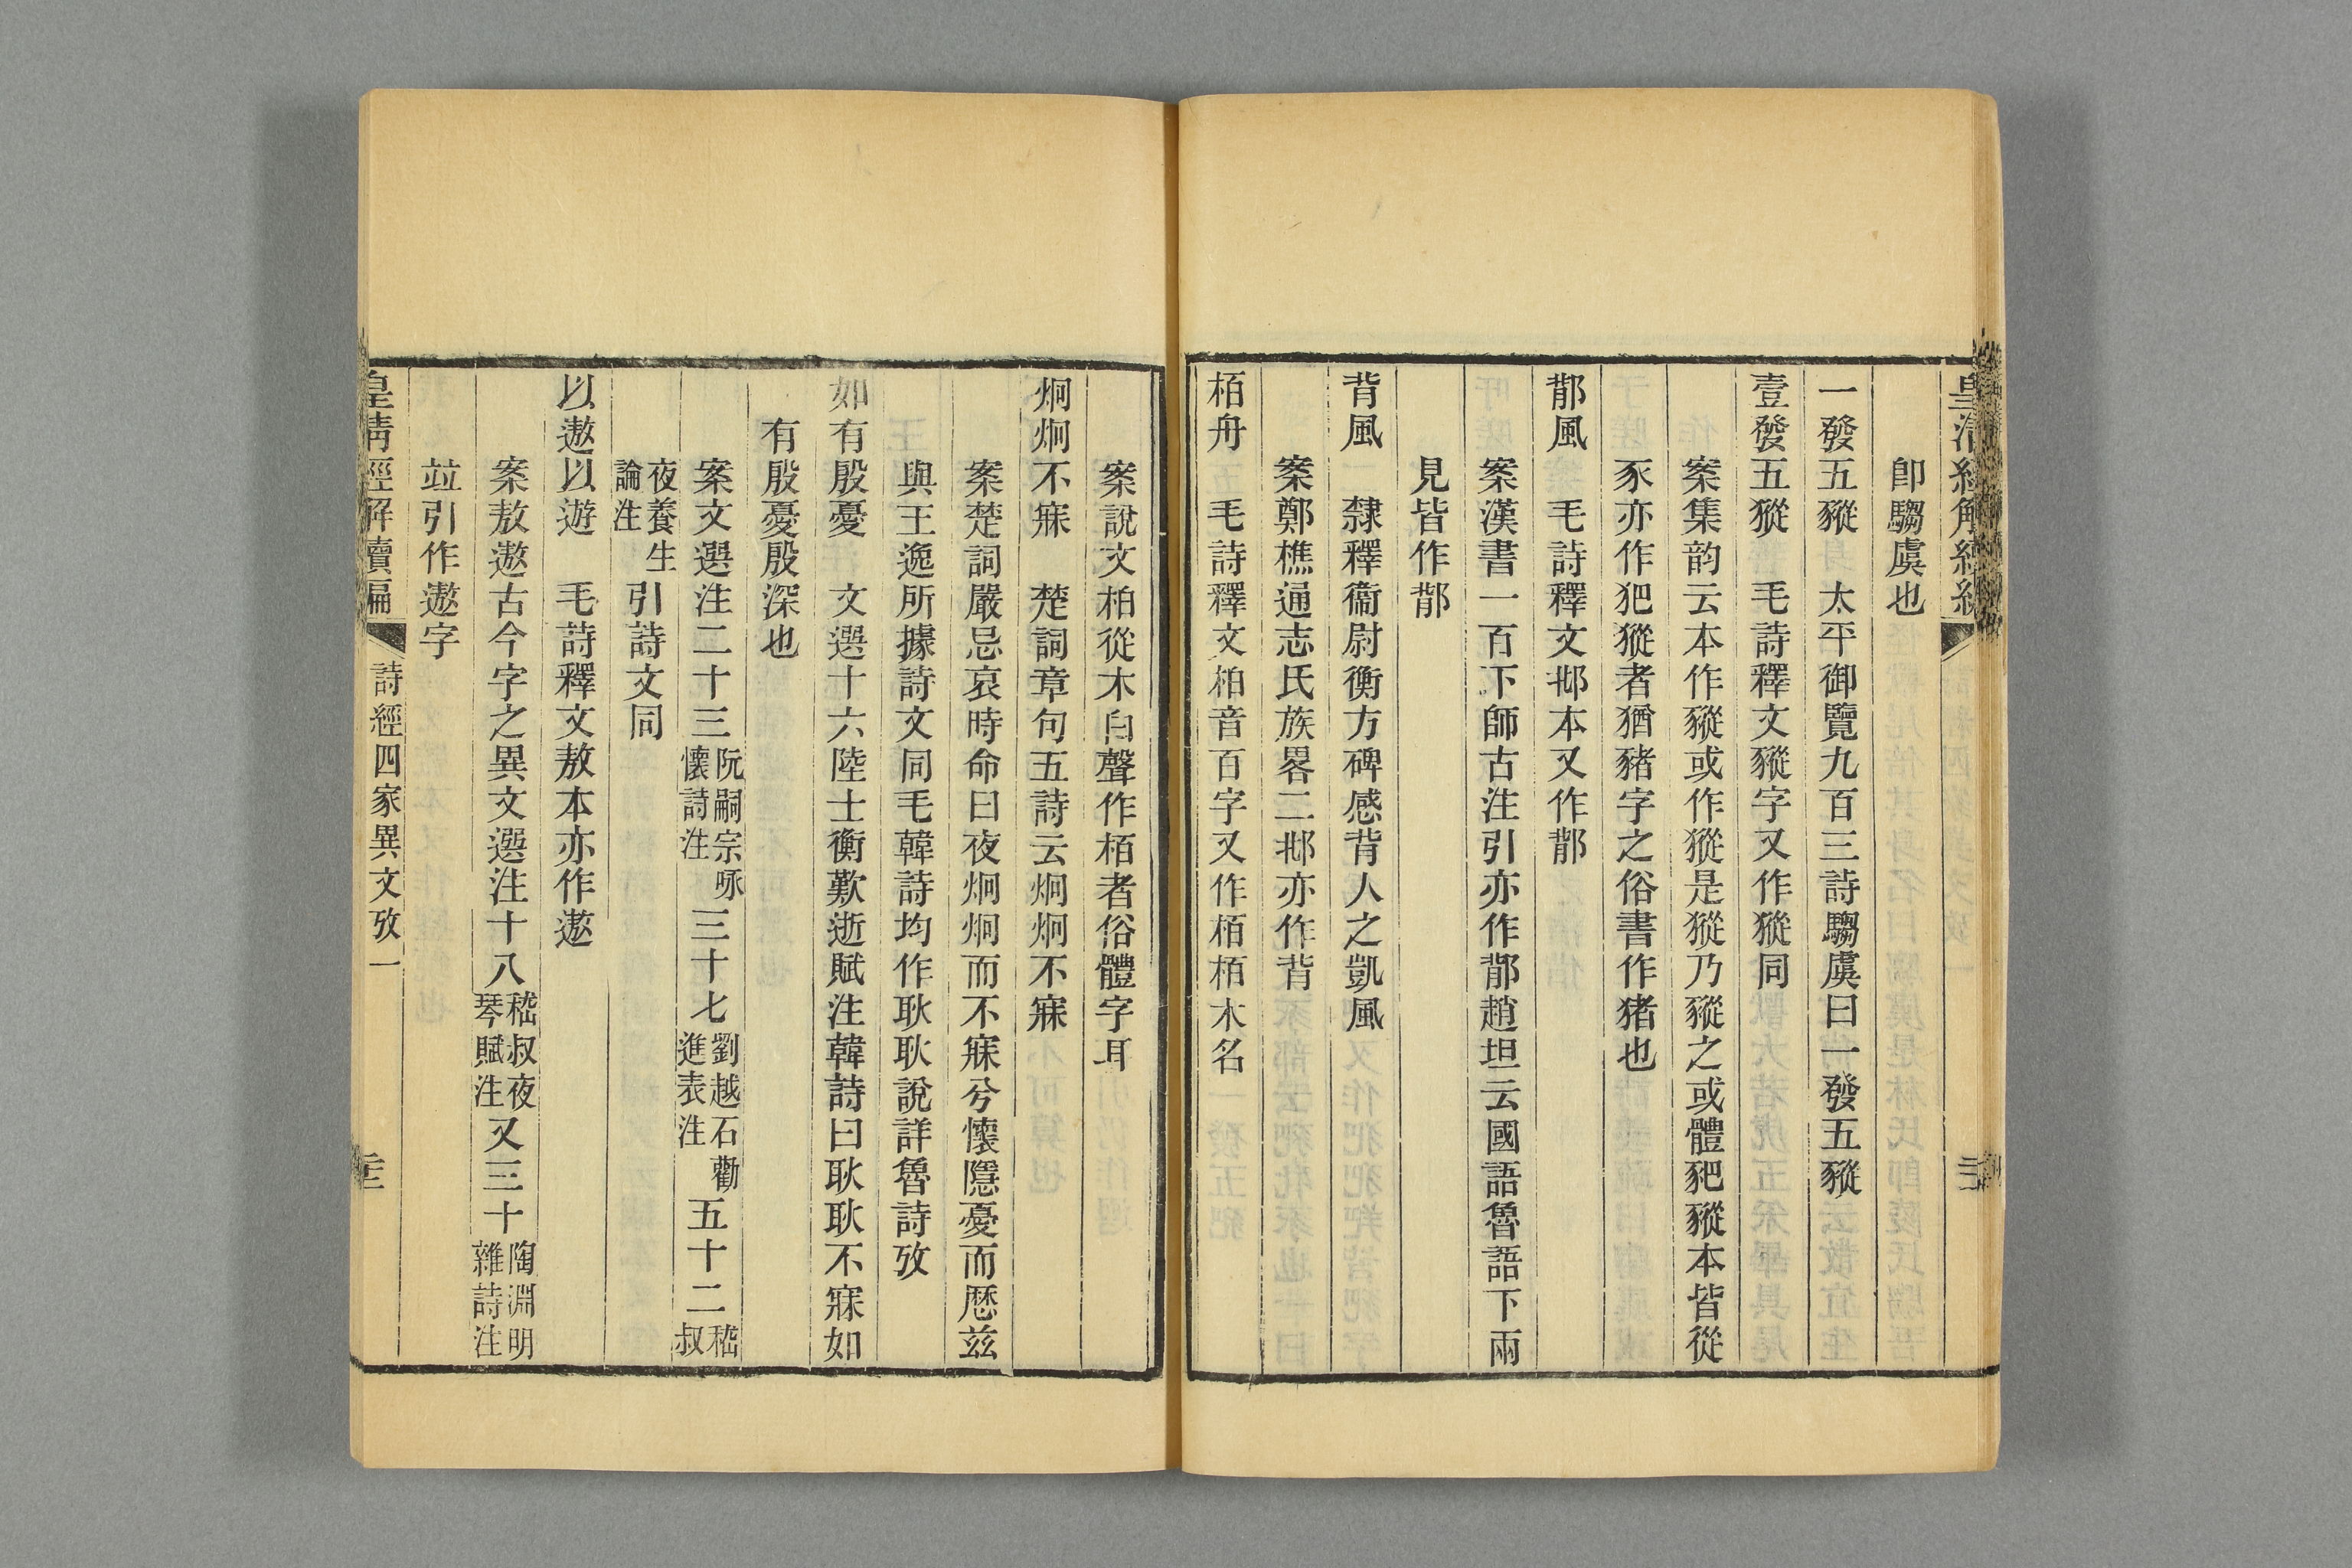 皇清經解續編
卽騶虞也
一發五豵　太平御覽九百三詩騶虞曰一發五豵
壹發五猣　毛詩釋文豵字又作猣同
案集韵云本作豵或作猣是猣乃豵之或體豝豵本皆從
豕亦作犯猣者猶豬字之俗書作猪也
鄁風　毛詩釋文邶本又作鄁
案漢書一百下師古注引亦作鄁趙坦云國語魯語下兩
見皆作鄁
背風　隸釋衞尉衡方碑感背人之凱風
案鄭樵通志氏族畧二邶亦作背
栢舟　毛詩釋文柏音百字又作栢栢木名
案說文柏從木白聲作栢者俗體字耳
炯炯不寐　楚詞章句五詩云炯炯不寐
案楚詞嚴忌哀時命曰夜炯炯而不寐兮懷隱憂而厯兹
與王逸所據詩文同毛韓詩均作耿耿說詳魯詩攷
如有殷憂　文選十六陸士衡歎逝賦注韓詩曰耿耿不寐如
有殷憂殷深也
案文選注二十三阮嗣宗咏懷詩注三十七劉越石勸進表注五十二嵇叔
夜養生論注引詩文同
以遨以遊　毛詩釋文敖本亦作遨
案敖遨古今字之異文選注十八嵇叔夜琴賦注又三十陶淵明雜詩注
竝引作遨字
皇清經解續編　詩經四家異文攷一